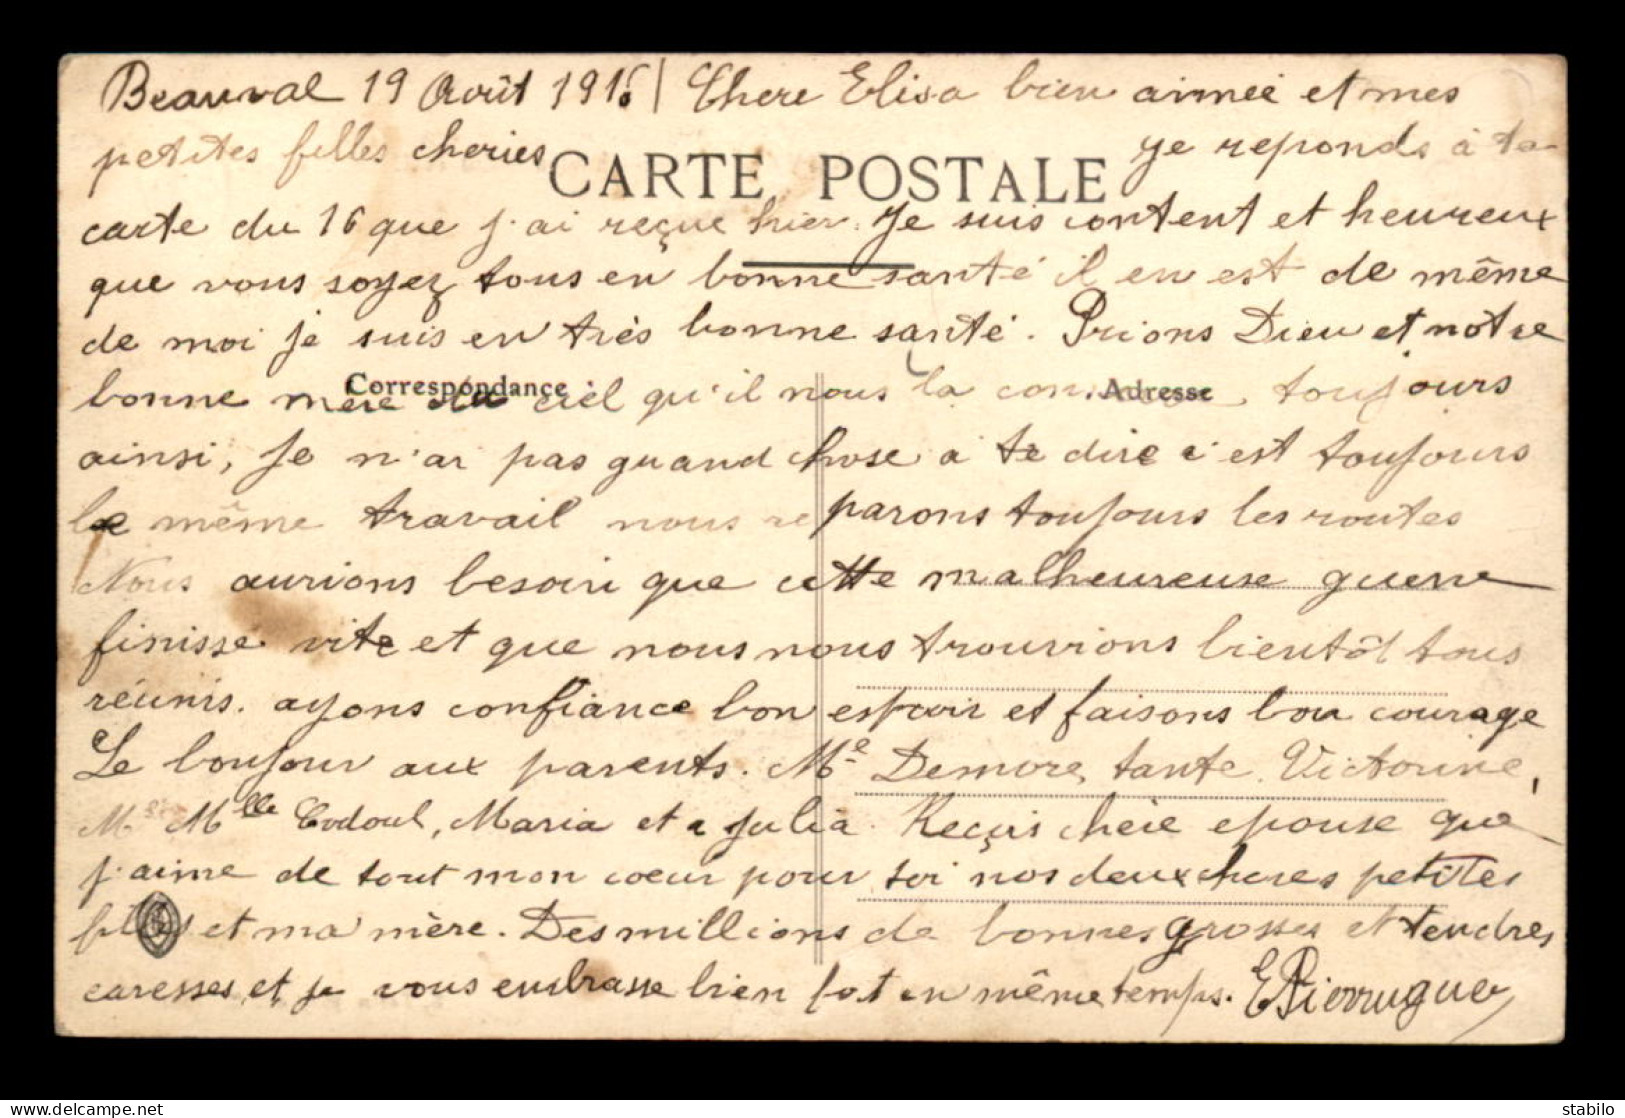 Beauval 19 Août 1916 / Chere Elisa bien aimeé et mes
petites filles cheries je reponds à ta
CARTE POSTALE
carte du 16 que j'ai reçue hier. Je suis content et heureux
que vous soyez tous en bonne santé il en est de même
de moi je suis en très bonne santé. Prions Dieu et notre
bonne mère du ciel qu'il nous la toujours
Correspondance Adresse
ainsi, Je n'ai pas quand chose a te dire c'est toujours
le même travail nous reparons toujours les routes
Nous aurions besoin que cette malheureuse guerre
finisse vite et que nous nous trouvions bientôt tous
réunis. ayons confiance bon espoir et faisons bon courage
Le bonjour aux parents. Me Demore, tante Victorine,
M Mlle Codoul, Maria et a Julia. Reçois chère epouse que
j'aime de tout mon coeur pour toi nos deux cheres petites
et ma mère. Des millions de bonnes grosses et tendres
caresses et je vous embrasse bien fort en même temps. E Pierrugues
stabilo